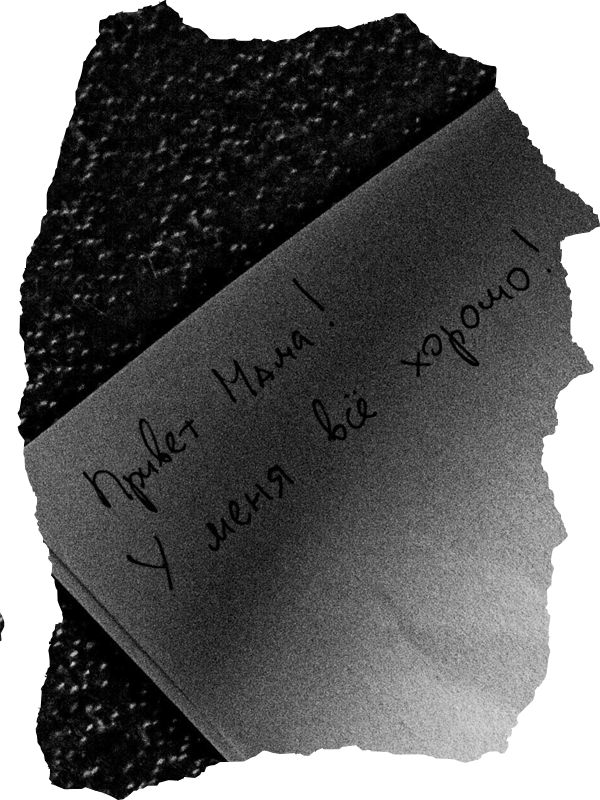 Привет Мама!
У меня всё хорошо!